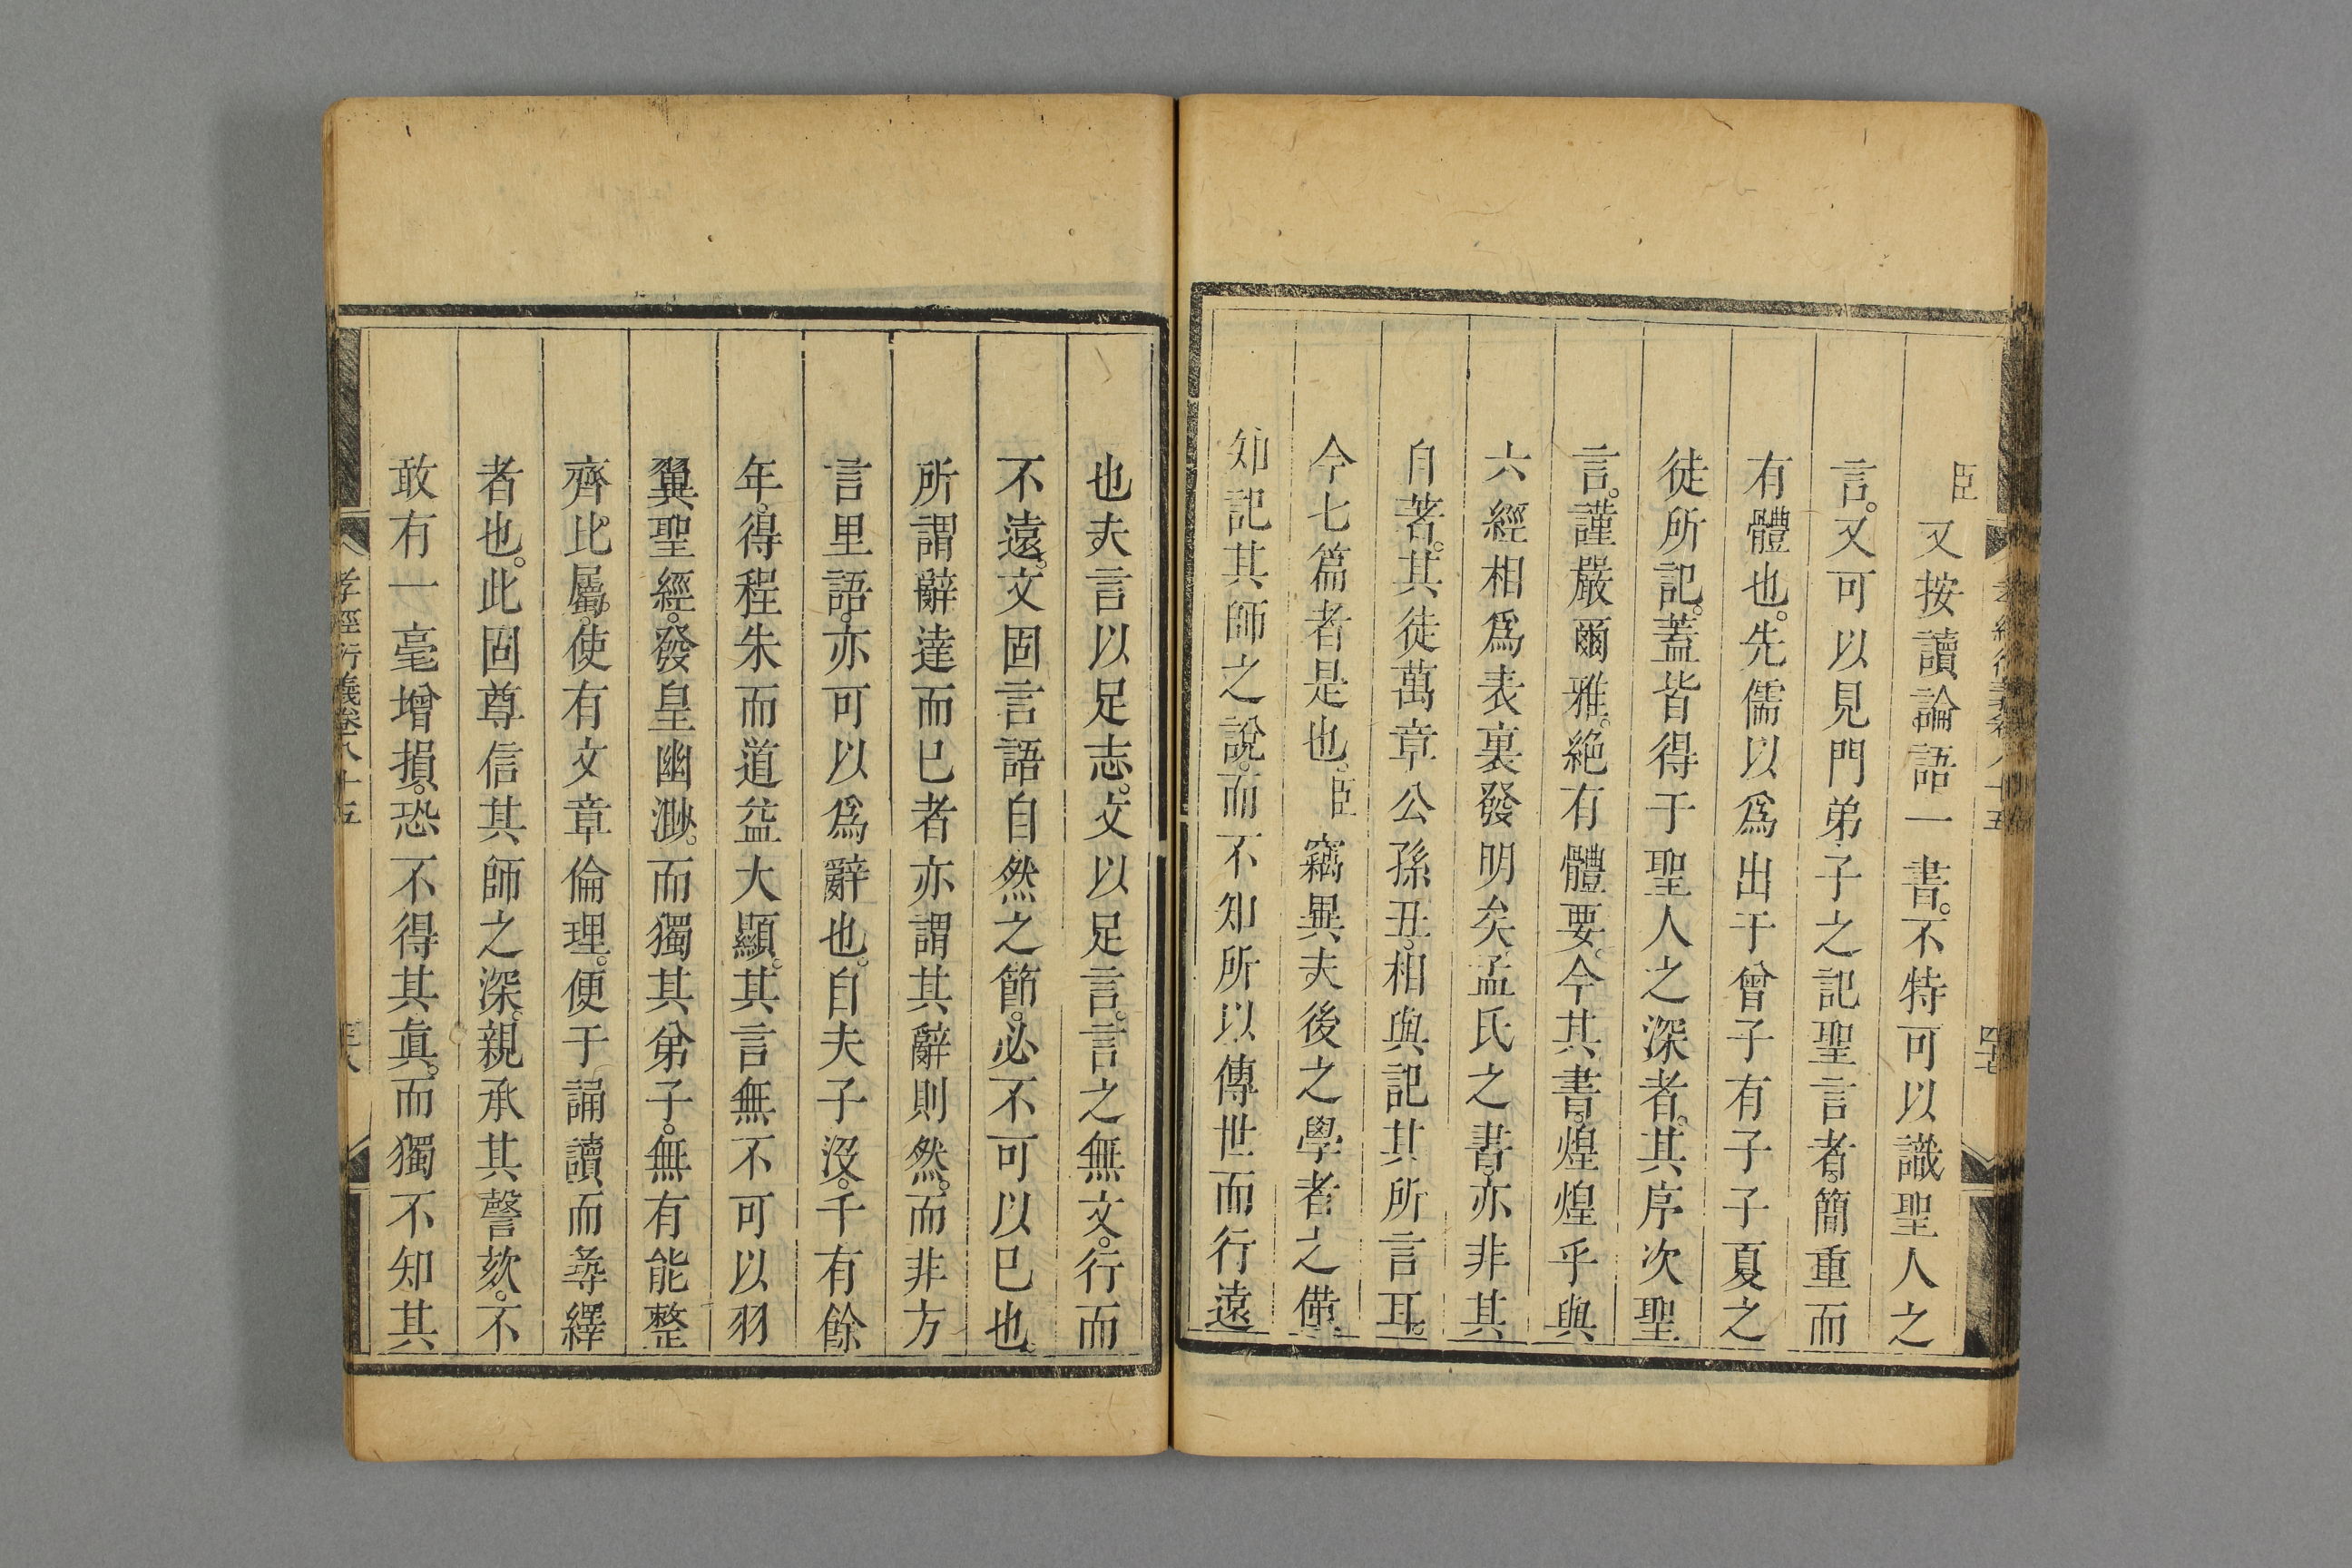 臣又按讀論語一書。不特可以識聖人之
言。又可以見門弟子之記聖言者。簡重而
有體也。先儒以爲出于曾子有子子夏之
徒所記。蓋皆得于聖人之深者。其序次聖
言。謹嚴爾雅。絶有體要。今其書。煌煌乎與
六經相爲表裏發明矣。孟氏之書。亦非其
自著。其徒萬章公孫丑。相與記其所言耳。
今七篇者是也。臣竊異夫後之學者之僅
知記其師之說。而不知所以傳世而行遠
也。夫言以足志。文以足言。言之無文。行而
不遠。文固言語自然之節。必不可以已也。
所謂辭達而已者亦謂其辭則然。而非方
言里語。亦可以爲辭也。自夫子沒。千有餘
年。得程朱而道益大顯。其言無不可以羽
翼聖經。發皇幽渺。而獨其弟子。無有能整
齊比屬。使有文章倫理。便于誦讀而尋繹
者也。此固尊信其師之深。親承其謦欬。不
敢有一毫增損。恐不得其眞。而獨不知其
孝經衍義卷八十五